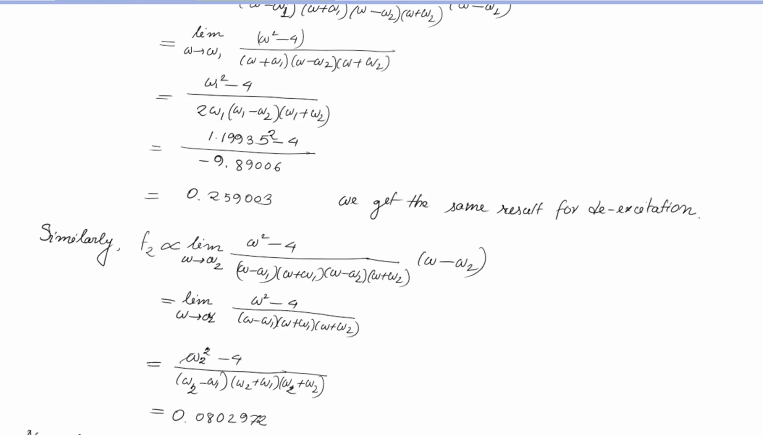 (ω-ω₁)(ω+ω₁)(ω-ω₂)(ω+ω₂) (ω-ω₂)
= lim ω→ω₁ (ω²-4) / (ω+ω₁)(ω-ω₂)(ω+ω₂)
= ω₁²-4 / 2ω₁(ω₁-ω₂)(ω₁+ω₂)
= 1.19935²-4 / -9.89006
= 0.259003 we get the same result for de-excitation.
Similarly, f₂ ∝ lim ω→ω₂ ω²-4 / (ω-ω₁)(ω+ω₁)(ω-ω₂)(ω+ω₂) (ω-ω₂)
= lim ω→ω₂ ω²-4 / (ω-ω₁)(ω+ω₁)(ω+ω₂)
= ω₂²-4 / (ω₂-ω₁)(ω₂+ω₁)(ω₂+ω₂)
= 0.0802972